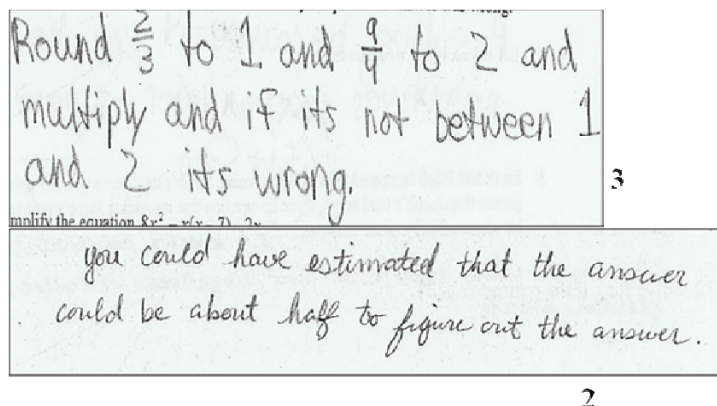 Round 2/3 to 1 and 9/4 to 2 and
multiply and if its not between 1
and 2 its wrong.
3
mplify the equation 8x² – x(x – 7) – 2x
you could have estimated that the answer
could be about half to figure out the answer.
2